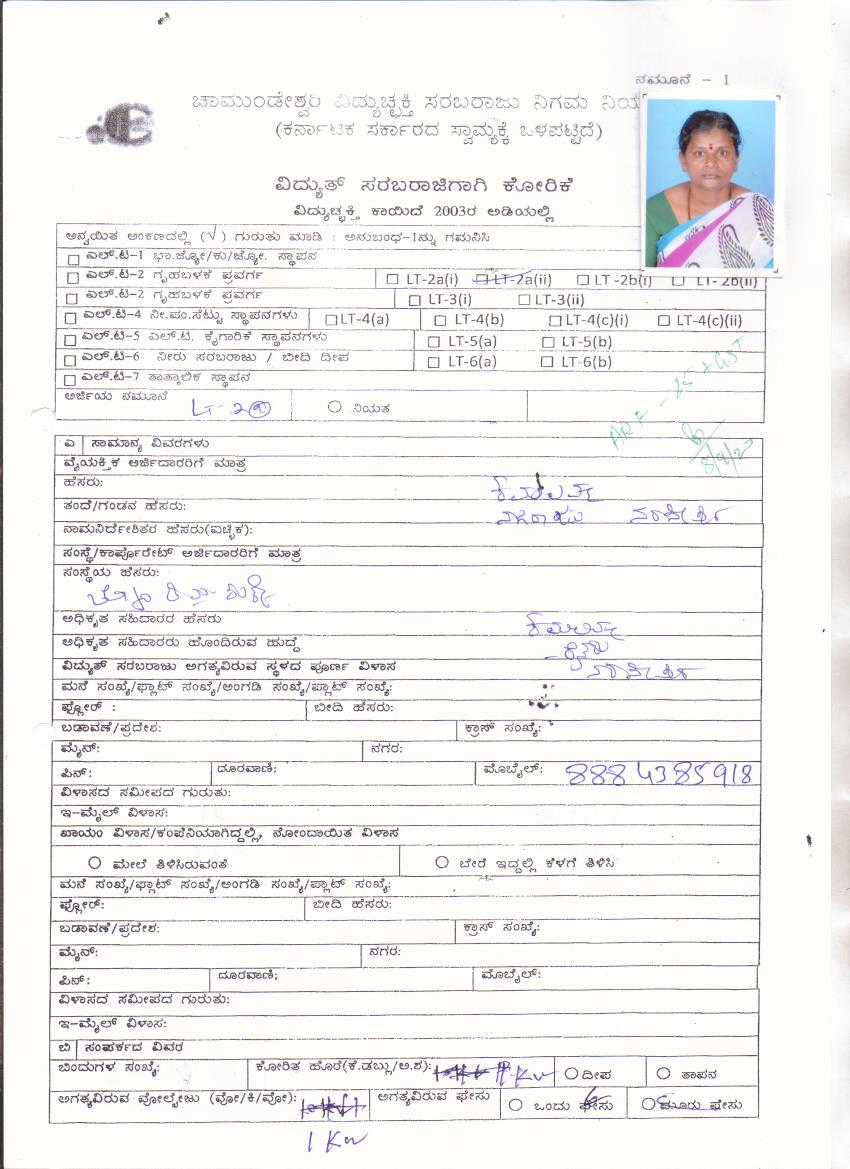 ನಮೂನೆ - 1
ಚಾಮುಂಡೇಶ್ವರಿ ವಿದ್ಯುಚ್ಛಕ್ತಿ ಸರಬರಾಜು ನಿಗಮ
(ಕರ್ನಾಟಕ ಸರ್ಕಾರದ ಸ್ವಾಮ್ಯಕ್ಕೆ ಒಳಪಟ್ಟಿದೆ)
ವಿದ್ಯುತ್ ಸರಬರಾಜಿಗಾಗಿ ಕೋರಿಕೆ
ವಿದ್ಯುಚ್ಛಕ್ತಿ ಕಾಯಿದೆ 2003ರ ಅಡಿಯಲ್ಲಿ
ಅನ್ವಯಿತ ಅಂಕಣದಲ್ಲಿ (√) ಗುರುತು ಮಾಡಿ : ಅನುಬಂಧ-1ನ್ನು ಗಮನಿಸಿ
ಎಲ್.ಟಿ-1 ಭಾ.ಜ್ಯೋ/ಕು/ಜ್ಯೋ. ಸ್ಥಾಪನ
ಎಲ್.ಟಿ-2 ಗೃಹಬಳಕೆ ಪ್ರವರ್ಗ LT-2a(i) LT-2a(ii) LT-2b(i) LT-2b(ii)
ಎಲ್.ಟಿ-2 ಗೃಹಬಳಕೆ ಪ್ರವರ್ಗ LT-3(i) LT-3(ii)
ಎಲ್.ಟಿ-4 ನೀ.ಪಂ.ಸೆಟ್ಟು ಸ್ಥಾಪನಗಳು LT-4(a) LT-4(b) LT-4(c)(i) LT-4(c)(ii)
ಎಲ್.ಟಿ-5 ಎಲ್.ಟಿ. ಕೈಗಾರಿಕೆ ಸ್ಥಾಪನಗಳು LT-5(a) LT-5(b)
ಎಲ್.ಟಿ-6 ನೀರು ಸರಬರಾಜು / ಬೀದಿ ದೀಪ LT-6(a) LT-6(b)
ಎಲ್.ಟಿ-7 ತಾತ್ಕಾಲಿಕ ಸ್ಥಾಪನ
ಅರ್ಜಿಯ ನಮೂನೆ LT-2(a) ನಿಯತ
ಎ ಸಾಮಾನ್ಯ ವಿವರಗಳು
ವೈಯಕ್ತಿಕ ಅರ್ಜಿದಾರರಿಗೆ ಮಾತ್ರ
ಹೆಸರು:
ತಂದೆ/ಗಂಡನ ಹೆಸರು:
ನಾಮನಿರ್ದೇಶಿತರ ಹೆಸರು(ಐಚ್ಛಿಕ):
ಸಂಸ್ಥೆ/ಕಾರ್ಪೊರೇಟ್ ಅರ್ಜಿದಾರರಿಗೆ ಮಾತ್ರ
ಸಂಸ್ಥೆಯ ಹೆಸರು:
ಅಧಿಕೃತ ಸಹಿದಾರರ ಹೆಸರು
ಅಧಿಕೃತ ಸಹಿದಾರರು ಹೊಂದಿರುವ ಹುದ್ದೆ
ವಿದ್ಯುತ್ ಸರಬರಾಜು ಅಗತ್ಯವಿರುವ ಸ್ಥಳದ ಪೂರ್ಣ ವಿಳಾಸ
ಮನೆ ಸಂಖ್ಯೆ/ಫ್ಲಾಟ್ ಸಂಖ್ಯೆ/ಅಂಗಡಿ ಸಂಖ್ಯೆ/ಪ್ಲಾಟ್ ಸಂಖ್ಯೆ:
ಫ್ಲೋರ್ : ಬೀದಿ ಹೆಸರು:
ಬಡಾವಣೆ/ಪ್ರದೇಶ: ಕ್ರಾಸ್ ಸಂಖ್ಯೆ:
ಮೈನ್: ನಗರ:
ಪಿನ್: ದೂರವಾಣಿ: ಮೊಬೈಲ್: 8884385918
ವಿಳಾಸದ ಸಮೀಪದ ಗುರುತು:
ಇ-ಮೈಲ್ ವಿಳಾಸ:
ಖಾಯಂ ವಿಳಾಸ/ಕಂಪೆನಿಯಾಗಿದ್ದಲ್ಲಿ, ನೋಂದಾಯಿತ ವಿಳಾಸ
ಮೇಲೆ ತಿಳಿಸಿರುವಂತೆ ಬೇರೆ ಇದ್ದಲ್ಲಿ ಕೆಳಗೆ ತಿಳಿಸಿ
ಮನೆ ಸಂಖ್ಯೆ/ಫ್ಲಾಟ್ ಸಂಖ್ಯೆ/ಅಂಗಡಿ ಸಂಖ್ಯೆ/ಪ್ಲಾಟ್ ಸಂಖ್ಯೆ:
ಫ್ಲೋರ್: ಬೀದಿ ಹೆಸರು:
ಬಡಾವಣೆ/ಪ್ರದೇಶ: ಕ್ರಾಸ್ ಸಂಖ್ಯೆ:
ಮೈನ್: ನಗರ:
ಪಿನ್: ದೂರವಾಣಿ; ಮೊಬೈಲ್:
ವಿಳಾಸದ ಸಮೀಪದ ಗುರುತು:
ಇ-ಮೈಲ್ ವಿಳಾಸ:
ಬಿ ಸಂಪರ್ಕದ ವಿವರ
ಬಿಂದುಗಳ ಸಂಖ್ಯೆ: ಕೋರಿತ ಹೊರೆ(ಕೆ.ಡಬ್ಲು/ಅ.ಶ): ದೀಪ ತಾಪನ
ಅಗತ್ಯವಿರುವ ವೋಲ್ಟೇಜು (ವೋ/ಕಿ/ವೋ): ಅಗತ್ಯವಿರುವ ಫೇಸು ಒಂದು ಫೇಸು ಮೂರು ಫೇಸು
1 Kw